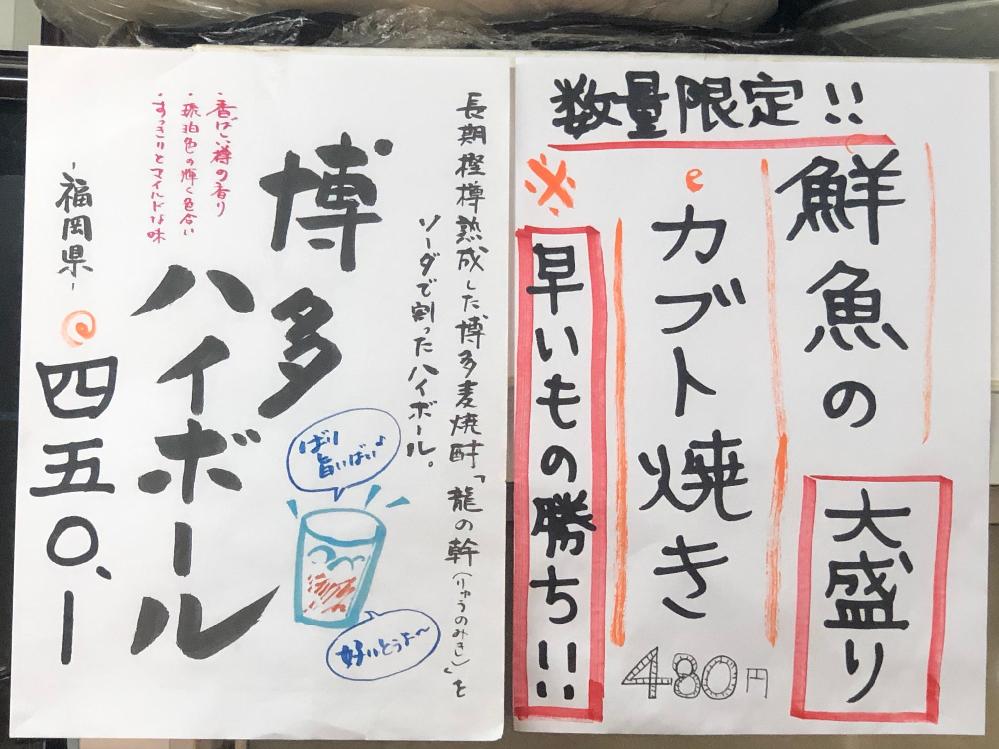 数量限定!!
鮮魚の
大盛り
カブト焼き
480円
※早いもの勝ち!!
長期樫樽熟成した博多麦焼酎「龍の幹(りゅうのみき)」を
ソーダで割ったハイボール。
博多
ハイボール
ばり
旨いばい♪
好いとうよ～
・香ばしい樽の香り
・琥珀色の輝く色合い
・すっきりとマイルドな味
-福岡県-
四五〇、ー